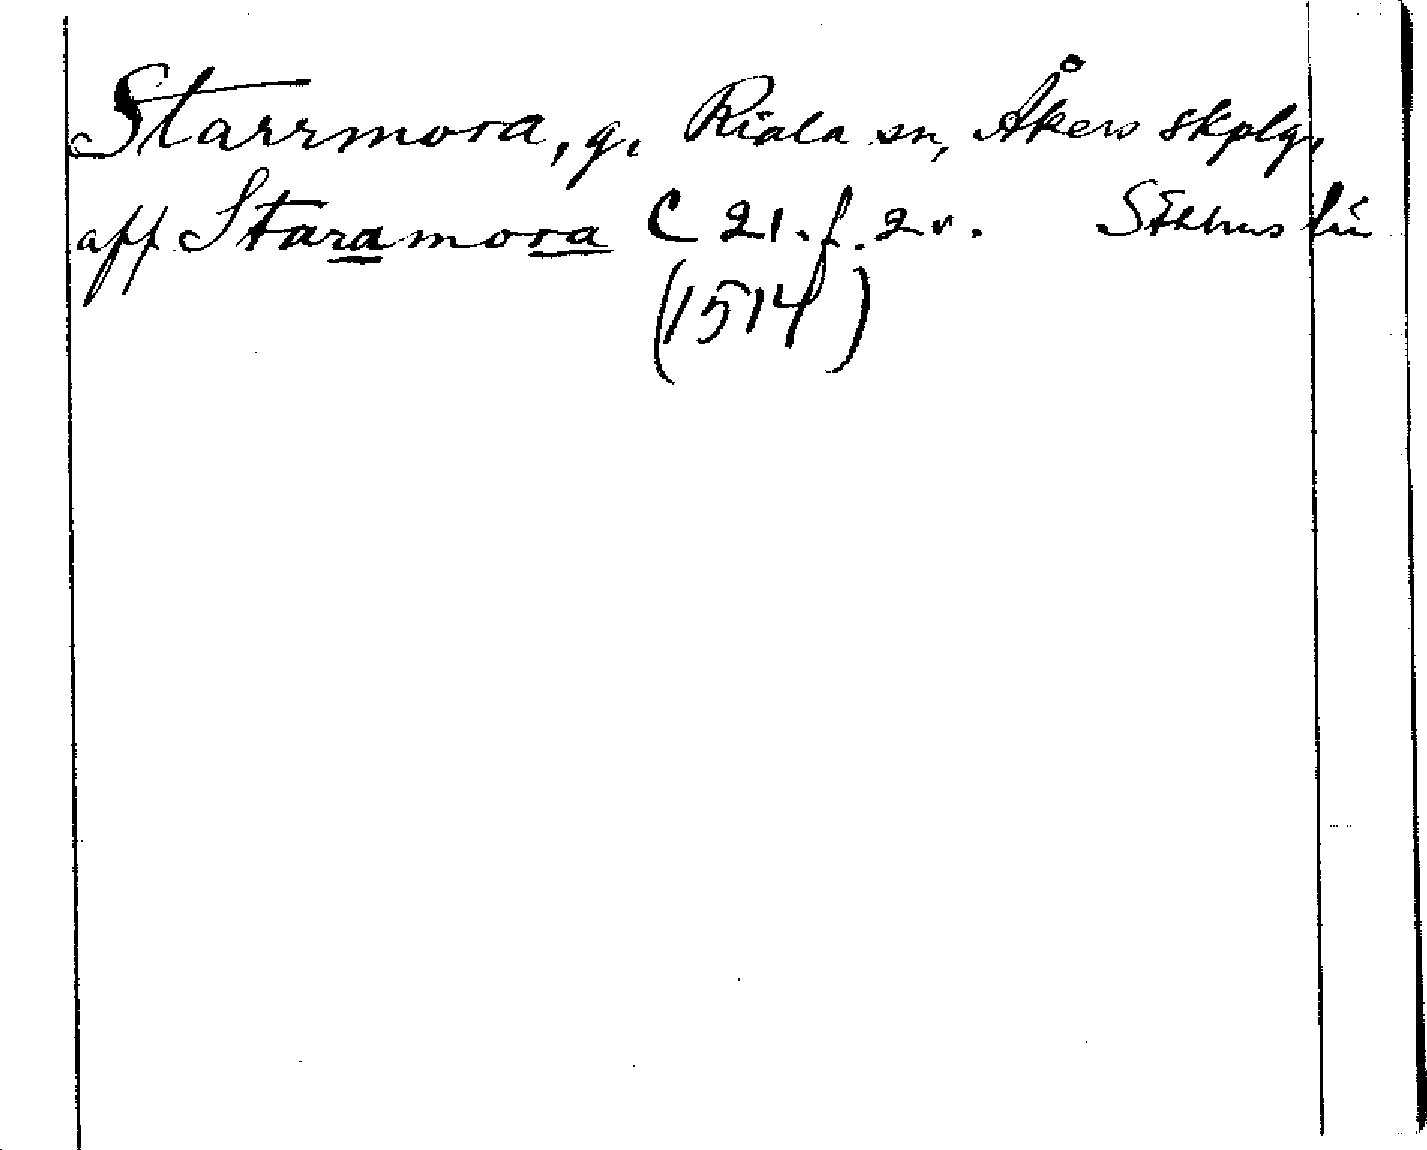 Starrmora, g. Riala sn, Åkers skplg,
aff Staramora C 21. f. 2v. Sthlms län
(1514)